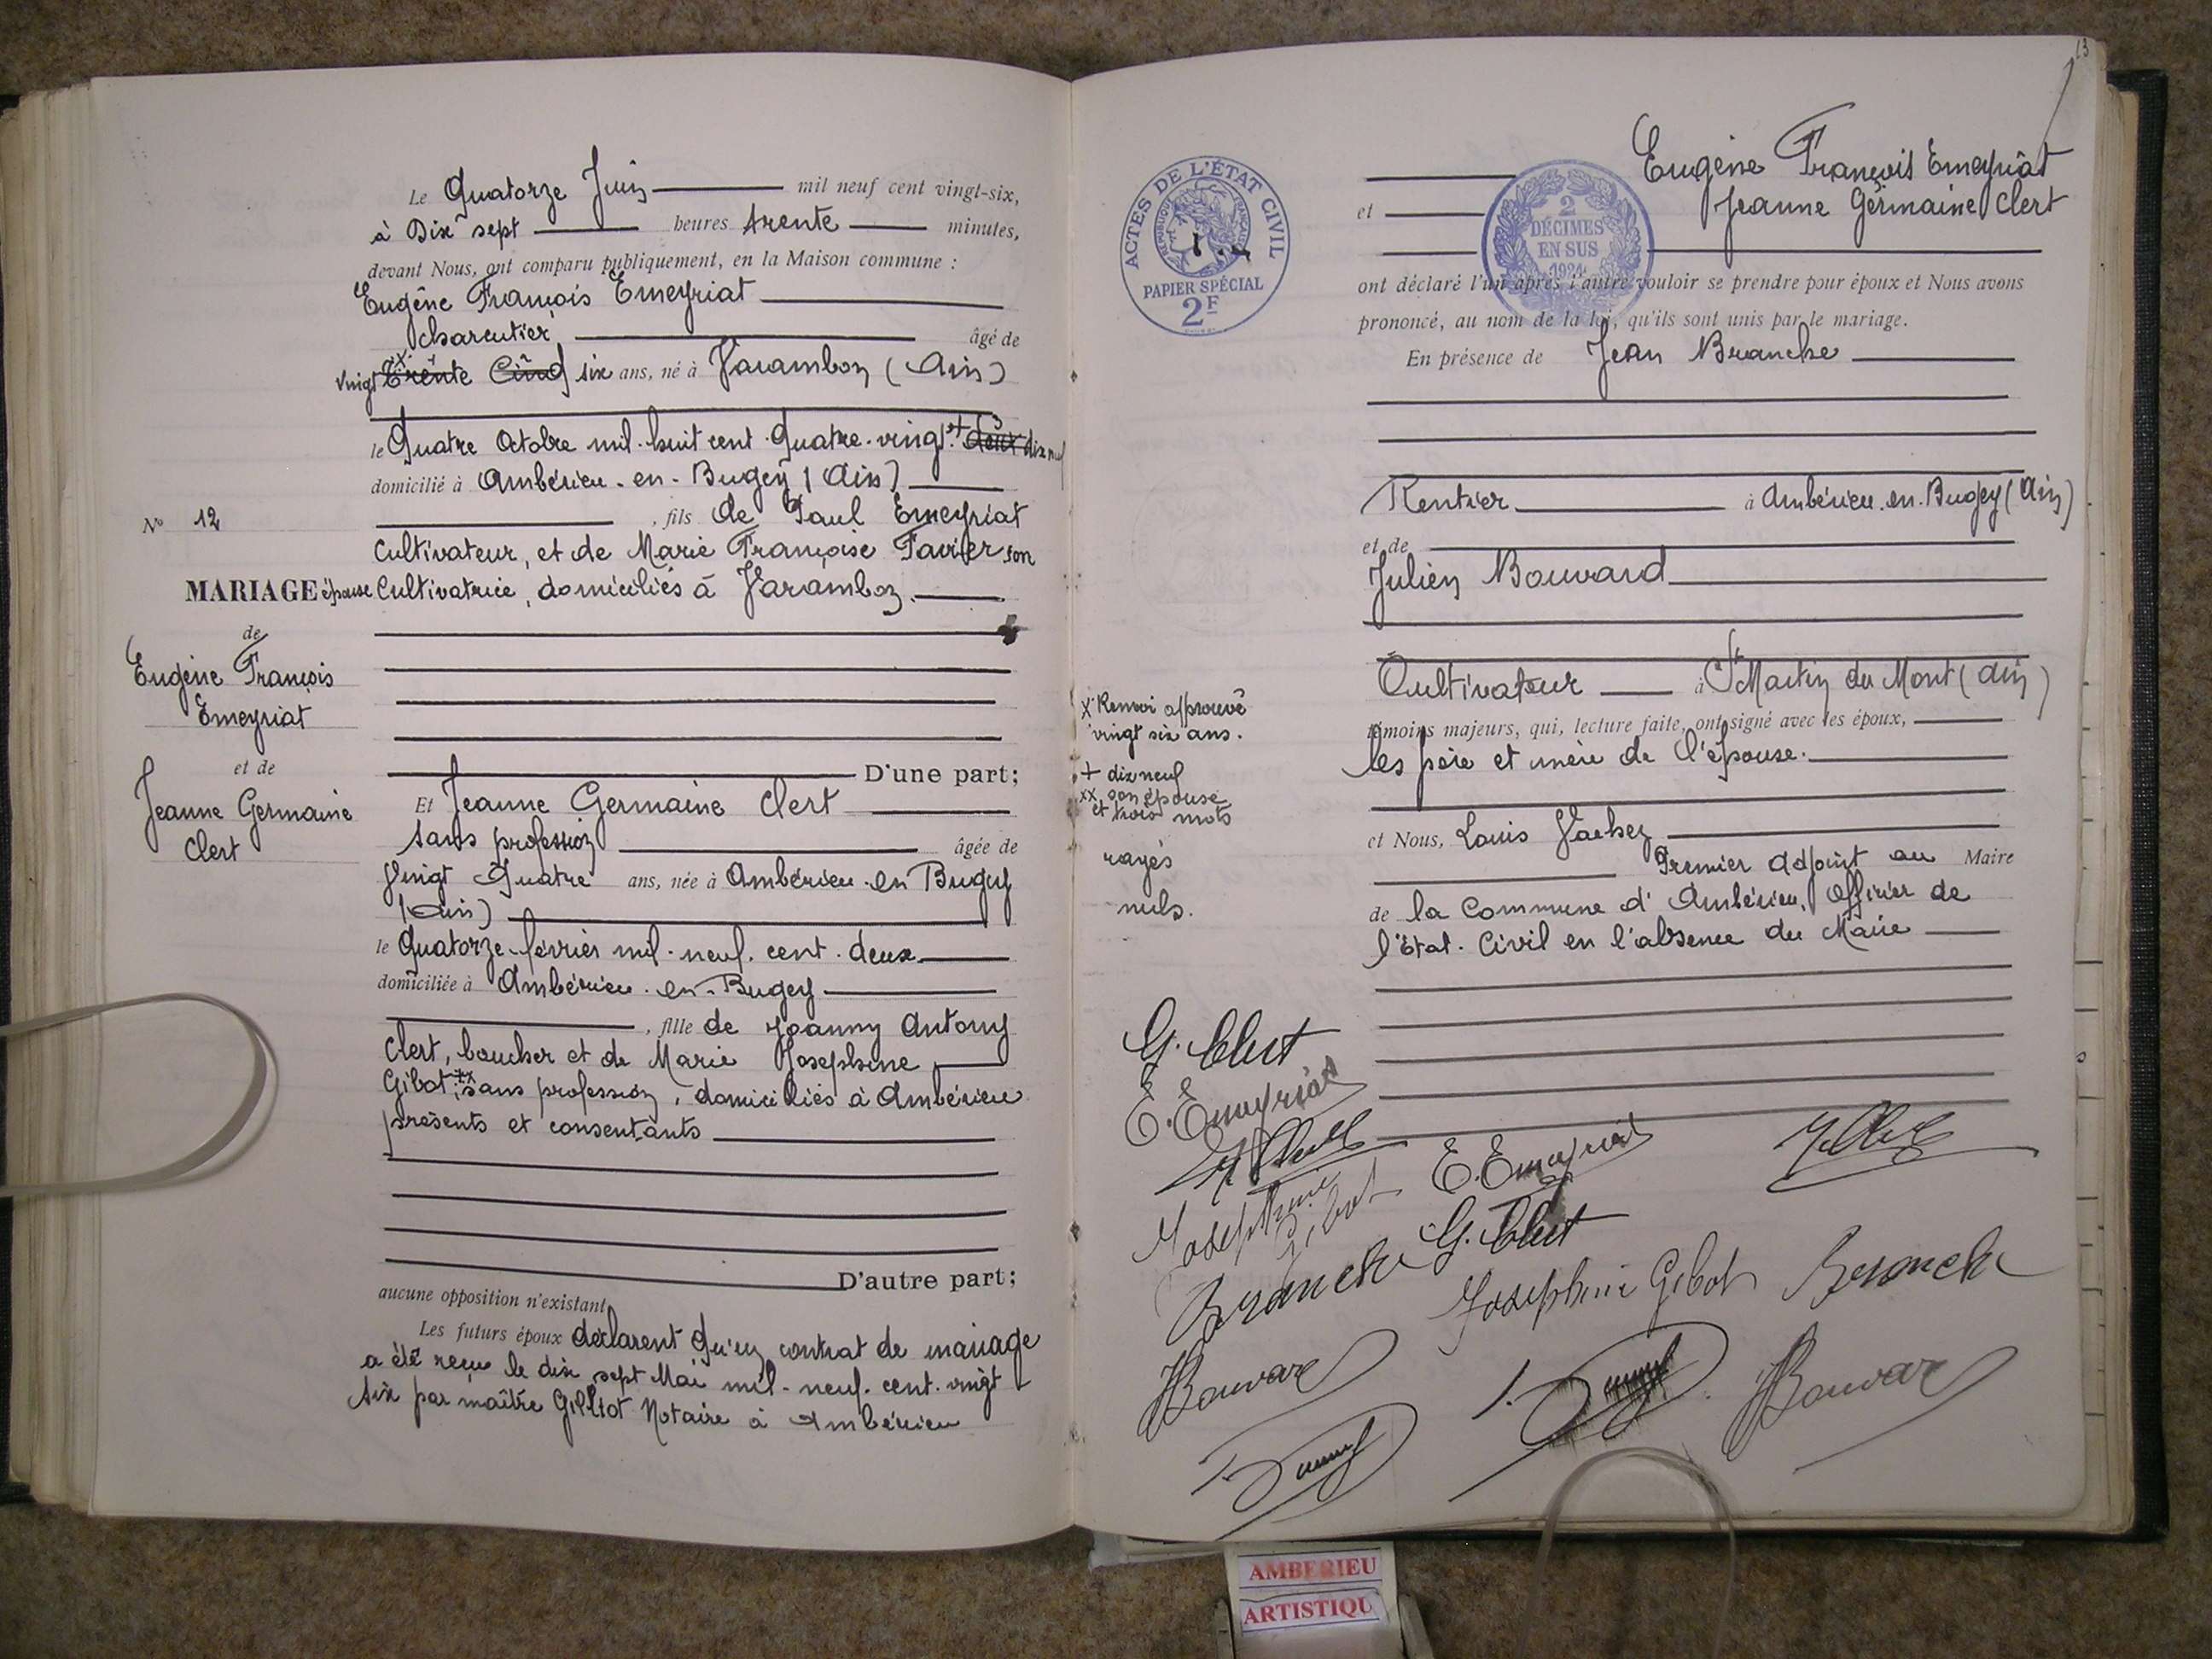 Le Quatorze Juin mil neuf cent vingt-six,
à Dix sept heures trente minutes,
devant Nous, ont comparu publiquement, en la Maison commune :
Eugène François Emeyriat
charcutier âgé de
vingt Trente Cinq six ans, né à Varambon (Ain)
le Quatre Octobre mil. huit cent. Quatre-vingt. deux dix neuf
domicilié à Ambérieu-en-Bugey (Ain)
, fils de Paul Emeyriat
Cultivateur, et de Marie Françoise Favier son
épouse Cultivatrice, domiciliés à Varambon.
N° 12
MARIAGE
de
Eugène François
Emeyriat
et de
Jeanne Germaine
Clert
D'une part;
Et Jeanne Germaine Clert
sans profession âgée de
Vingt Quatre ans, née à Ambérieu-en Bugey
(Ain)
le Quatorze février mil. neuf. cent. deux
domiciliée à Ambérieu-en-Bugey
, fille de Joanny Antony
Clert, boucher et de Marie Josephine
Gibot, xx sans profession, domiciliés à Ambérieu
présents et consentants
D'autre part;
aucune opposition n'existant
Les futurs époux déclarent Qu'un contrat de mariage
a été reçu le dix sept Mai mil. neuf. cent. vingt
six par maître Notaire à Ambérieu
13
ACTES DE L'ÉTAT CIVIL
RÉPUBLIQUE FRANÇAISE
PAPIER SPÉCIAL
2F
2
DÉCIMES
EN SUS
1921
Eugène François Emeyriat
et Jeanne Germaine Clert
ont déclaré l'un après l'autre vouloir se prendre pour époux et Nous avons
prononcé, au nom de la loi, qu'ils sont unis par le mariage.
En présence de Jean Branche
Rentier à Ambérieu.en.Bugey (Ain)
et de
Julien Bouvard
Cultivateur à St Martin du Mont (Ain)
témoins majeurs, qui, lecture faite, ont signé avec les époux,
les père et mère de l'épouse.
et Nous, Louis Vachez
Premier Adjoint au Maire
de la Commune d'Ambérieu, Officier de
l'Etat. Civil en l'absence du Maire
x Renvoi approuvé
vingt six ans.
+ dix neuf
xx son épouse
et trois mots
rayés
nuls.
G. Clert
E. Emeyriat
E. Emeyriat
Josephine
Gibot
G. Clert
Branche
Josephine Gibot
Branche
Bouvard
Bouvard
AMBERIEU
ARTISTIQU